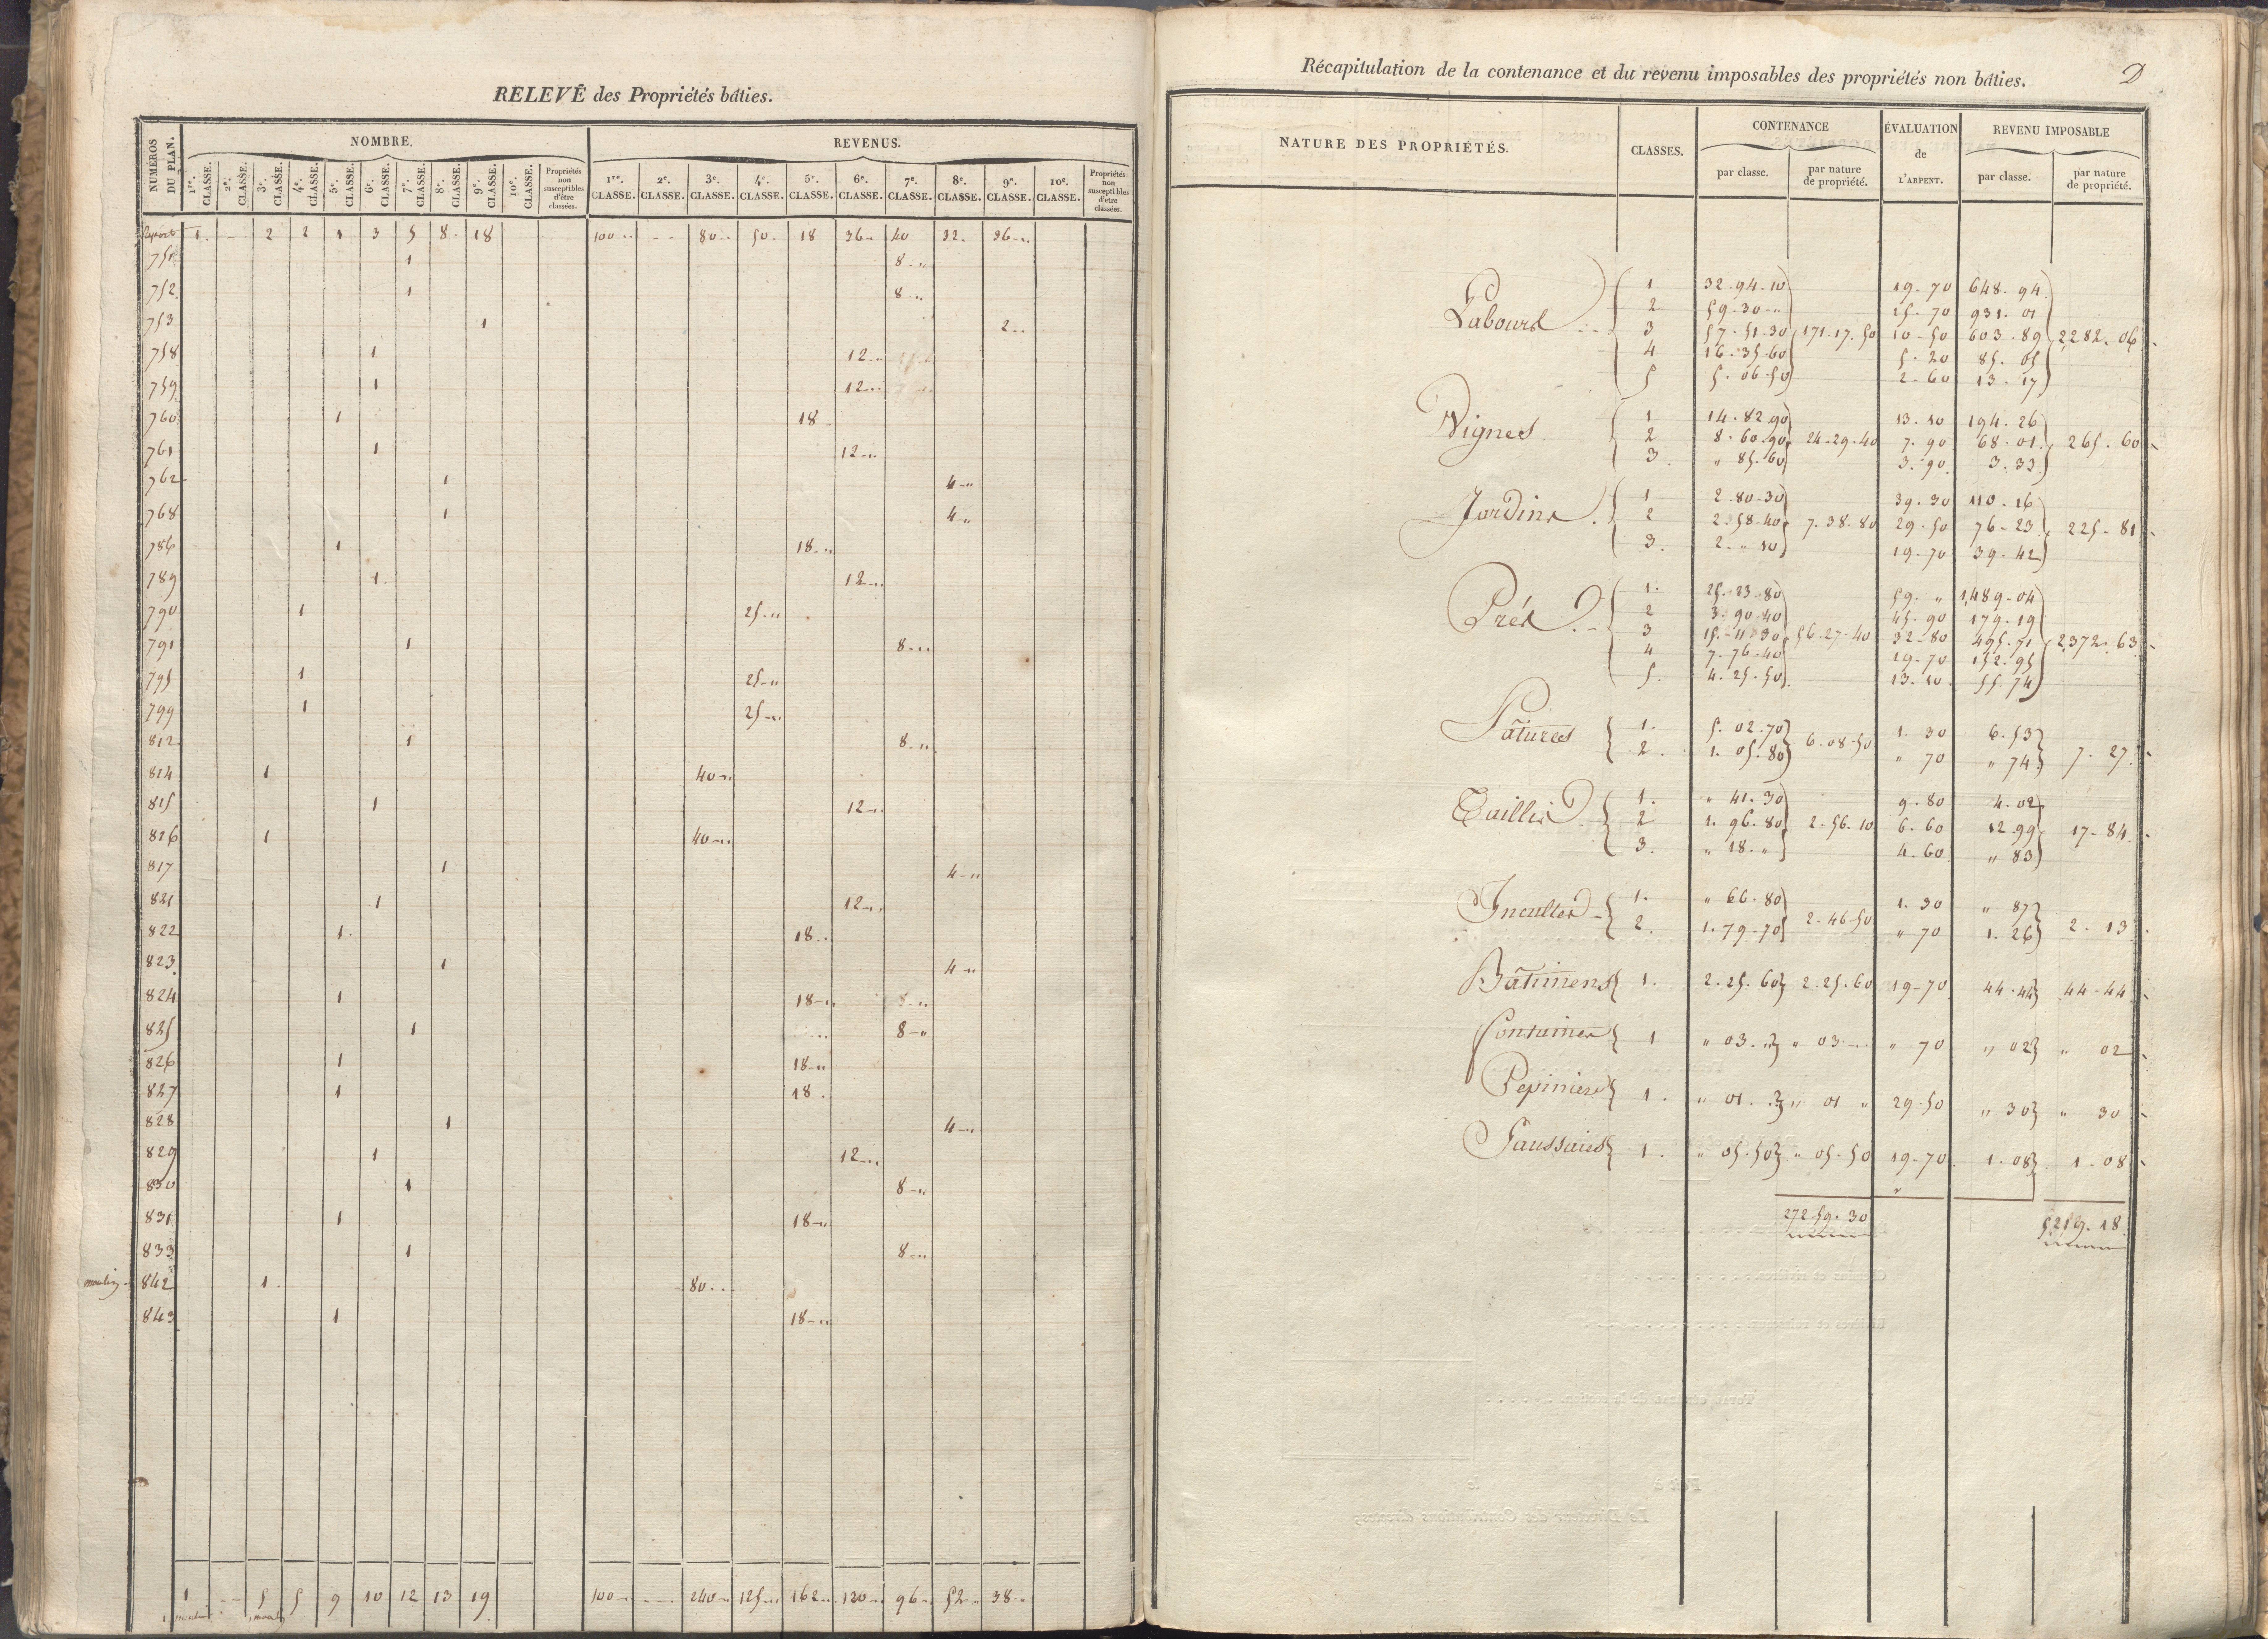 RELEVÉ des Propriétés bâties.
NUMÉROS DU PLAN. NOMBRE. REVENUS.
1re. CLASSE. 2e. CLASSE. 3e. CLASSE. 4e. CLASSE. 5e. CLASSE. 6e. CLASSE. 7e. CLASSE. 8e. CLASSE. 9e. CLASSE. 10e. CLASSE. Propriétés non susceptibles d'être classées. 1re. CLASSE. 2e. CLASSE. 3e. CLASSE. 4e. CLASSE. 5e. CLASSE. 6e. CLASSE. 7e. CLASSE. 8e. CLASSE. 9e. CLASSE. 10e. CLASSE. Propriétés non susceptibles d'être classées.
Report 1. - - 2 2 1 3 5 8. 18 100 - - - 80 - 50 - 18 36 - 40 32 - 36 -
751 1 8 - "
752 1 8 - "
753 1 2 -
758 1 12 - "
759 1 12 - "
760 1 18 -
761 1 12 - "
762 1 4 - "
768 1 4 - "
786 1 18 - "
789 1. 12 - "
790 1 25 - "
791 1 8 - "
795 1 25 - "
799 1 25 - "
812 1 8 - "
814 1 40 - "
815 1 12 - "
826 1 40 - "
817 1 4 - "
821 1 12 - "
822 1. 18 -
823 1 4 - "
824 1 18 - "
825 1 8 - "
826 1 18 - "
827 1 18 .
828 1 4 - "
829 1 12 - "
830 1 8 - "
831 1 18 - "
833 1 8 - "
moulin - 842 1. 80 - "
843 1 18 - "
1 - - 5 5 9 10 12 13 19 100 - - - 240 - 125 - 162 - 120 - 96 - 52 - 38 -
Récapitulation de la contenance et du revenu imposables des propriétés non bâties. D
NATURE DES PROPRIÉTÉS. CLASSES. CONTENANCE par classe. par nature de propriété. ÉVALUATION de L'ARPENT. REVENU IMPOSABLE par classe. par nature de propriété.
1 32 - 94 - 10 19 - 70 648 - 94
2 59 - 30 - " 15 - 70 931 - 01
Labours 3 57 - 51 - 30 171 - 17 - 50 10 - 50 603 - 89 2282 - 06
4 16 - 35 - 60 5 - 20 85 - 05
5 5 - 06 - 50 2 - 60 13 - 17
1 14 - 82 - 90 13 - 10 194 - 26
Vignes 2 8 - 60 - 90 24 - 29 - 40 7 - 90 68 - 01 265 - 60
3. " 85 - 60 3 - 90 3 - 33
1 2 - 80 - 30 39 - 30 110 - 16
Jardins. 2 2 - 58 - 40 7 - 38 - 80 29 - 50 76 - 23 225 - 81
3. 2 - " 10 19 - 70 39 - 42
1. 25 - 23 - 80 59 - " 1,489 - 04
2 3 - 90 - 40 45 - 90 179 - 19
Prés. 3 15 - 11 - 30 56 - 27 - 40 32 - 80 495 - 71 2372 - 63
4 7 - 76 - 40 19 - 70 152 - 95
5. 4 - 25 - 50 13 - 10 55 - 74
Pâtures 1. 5 - 02 - 70 6 - 08 - 50 1 - 30 6 - 53 7 - 27
2. 1 - 05 - 80 " 70 " 74
1. " 41 - 30 9 - 80 4 - 02
Taillis 2 1 - 96 - 80 2 - 56 - 10 6 - 60 12 - 99 17 - 84
3. " 18 - " 4 - 60 " 83
Incultes 1. " 66 - 80 2 - 46 - 50 1 - 30 " 87 2 - 13
2. 1 - 79 - 70 " 70 1 - 26
Bâtimens 1. 2 - 25 - 60 2 - 25 - 60 19 - 70 44 - 44 44 - 44
Fontaines 1 " 03 - " " 03 - " 70 " 02 " 02
Pepiniere 1. " 01 - " " 01 " 29 - 50 " 30 " 30
Saussaies 1. " 05 - 50 " 05 - 50 19 - 70 1 - 08 1 - 08
272 - 59 - 30 5219 - 18